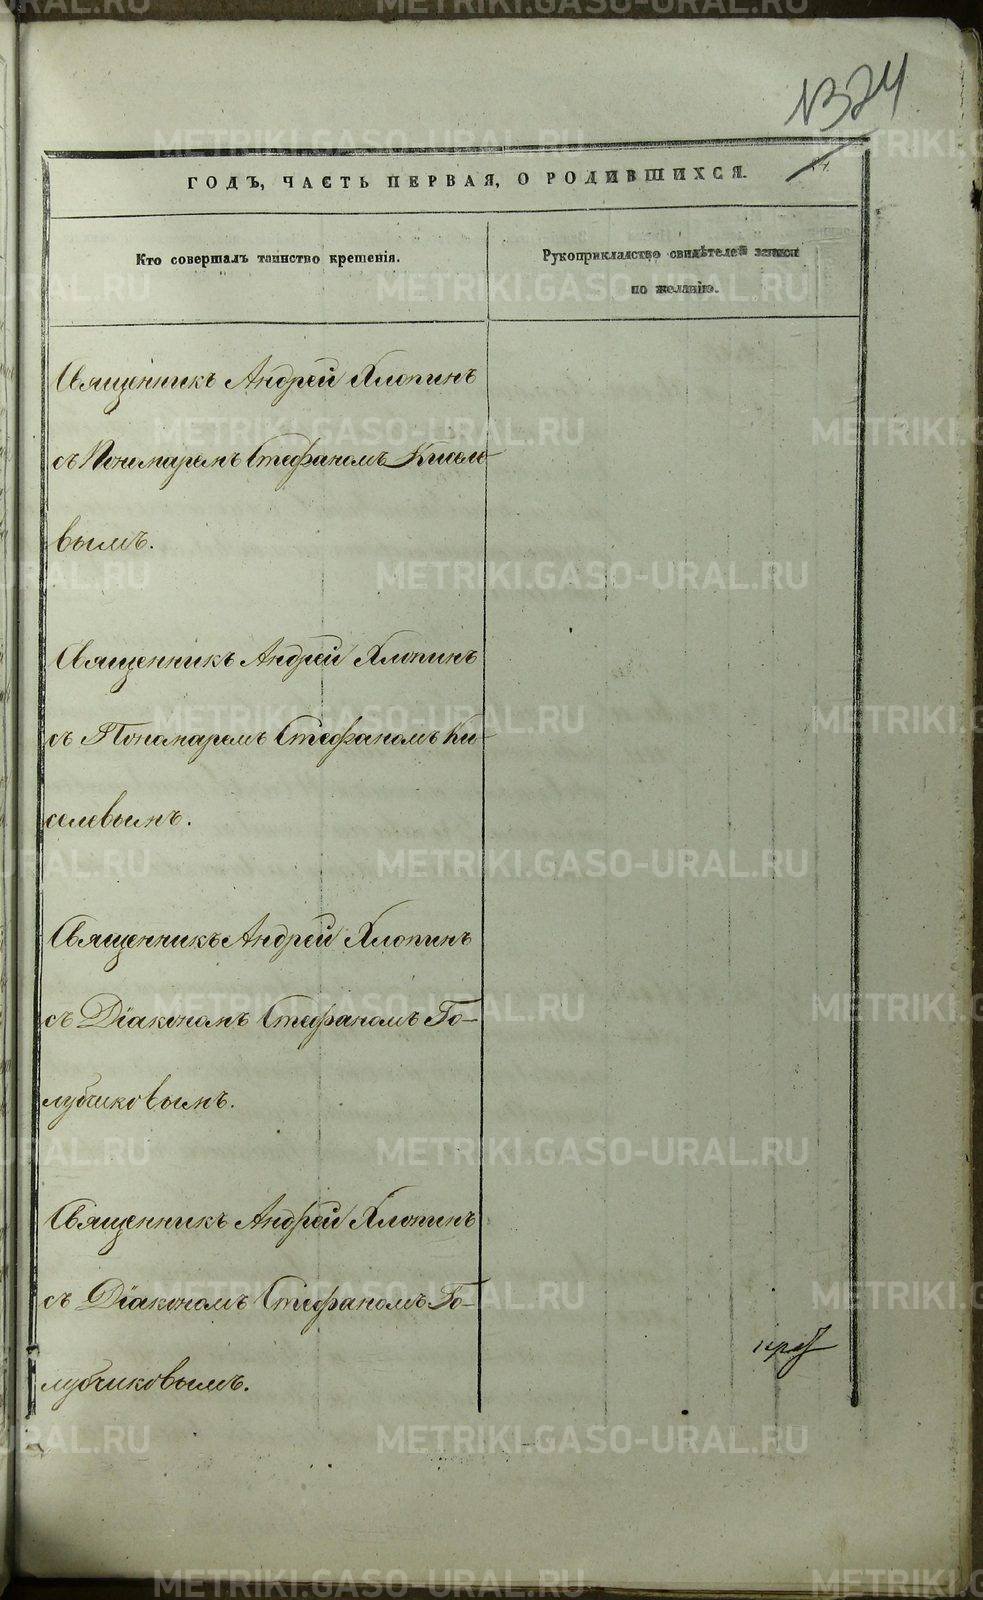 1324
ГОДЪ, ЧАСТЬ ПЕРВАЯ, О РОДИВШИХСЯ.
Кто совершалъ таинство крещенія.
Рукоприкладство свидѣтелей записи
по желанію.
Священникъ Андрей Хлопинъ
съ Пономаремъ Стефаномъ Кисель-
вымъ.
Священникъ Андрей Хлопинъ
съ Пономаремъ Стефаномъ Ки-
селевымъ.
Священникъ Андрей Хлопинъ
съ Діакономъ Стефаномъ Го-
лубчиковымъ.
Священникъ Андрей Хлопинъ
съ Діакономъ Стефаномъ Го-
лубчиковымъ.
METRIKI.GASO-URAL.RU